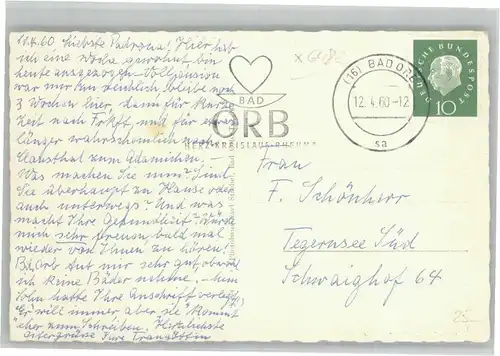 11.4.60, Liebste Padrona! Hier hab
ich eine Woche gewohnt bin
heute ausgezogen - Vollpension
war mir zu reichlich, bleibe noch
3 Wochen hier, dann für kurze
Zeit nach Frkft und für
länger wahrscheinlich nach
Clausthal zum Adamichen. -
Was machen Sie nun? Sind
Sie überhaupt zu Hause oder
auch unterwegs? Und was
macht Ihre Gesundheit? Würde
mich sehr freuen bald mal
wieder von Ihnen zu hören!
B. Orb tut mir sehr gut, obwohl
ich keine Bäder nehme. - Mein
Sohn hatte Ihre Anschrift verlegt,
Er will immer aber sie "kommt"
eher zum Schreiben. Herzlichste
Ostergrüsse Ihre
BAD
ORB
HERZ KREISLAUF RHEUMA
(16) BAD ORB
12.4.60-12
sa
DEUTSCHE BUNDESPOST
10
Frau
F. Schönherr
Tegernsee Süd
Schwaighof 64
25